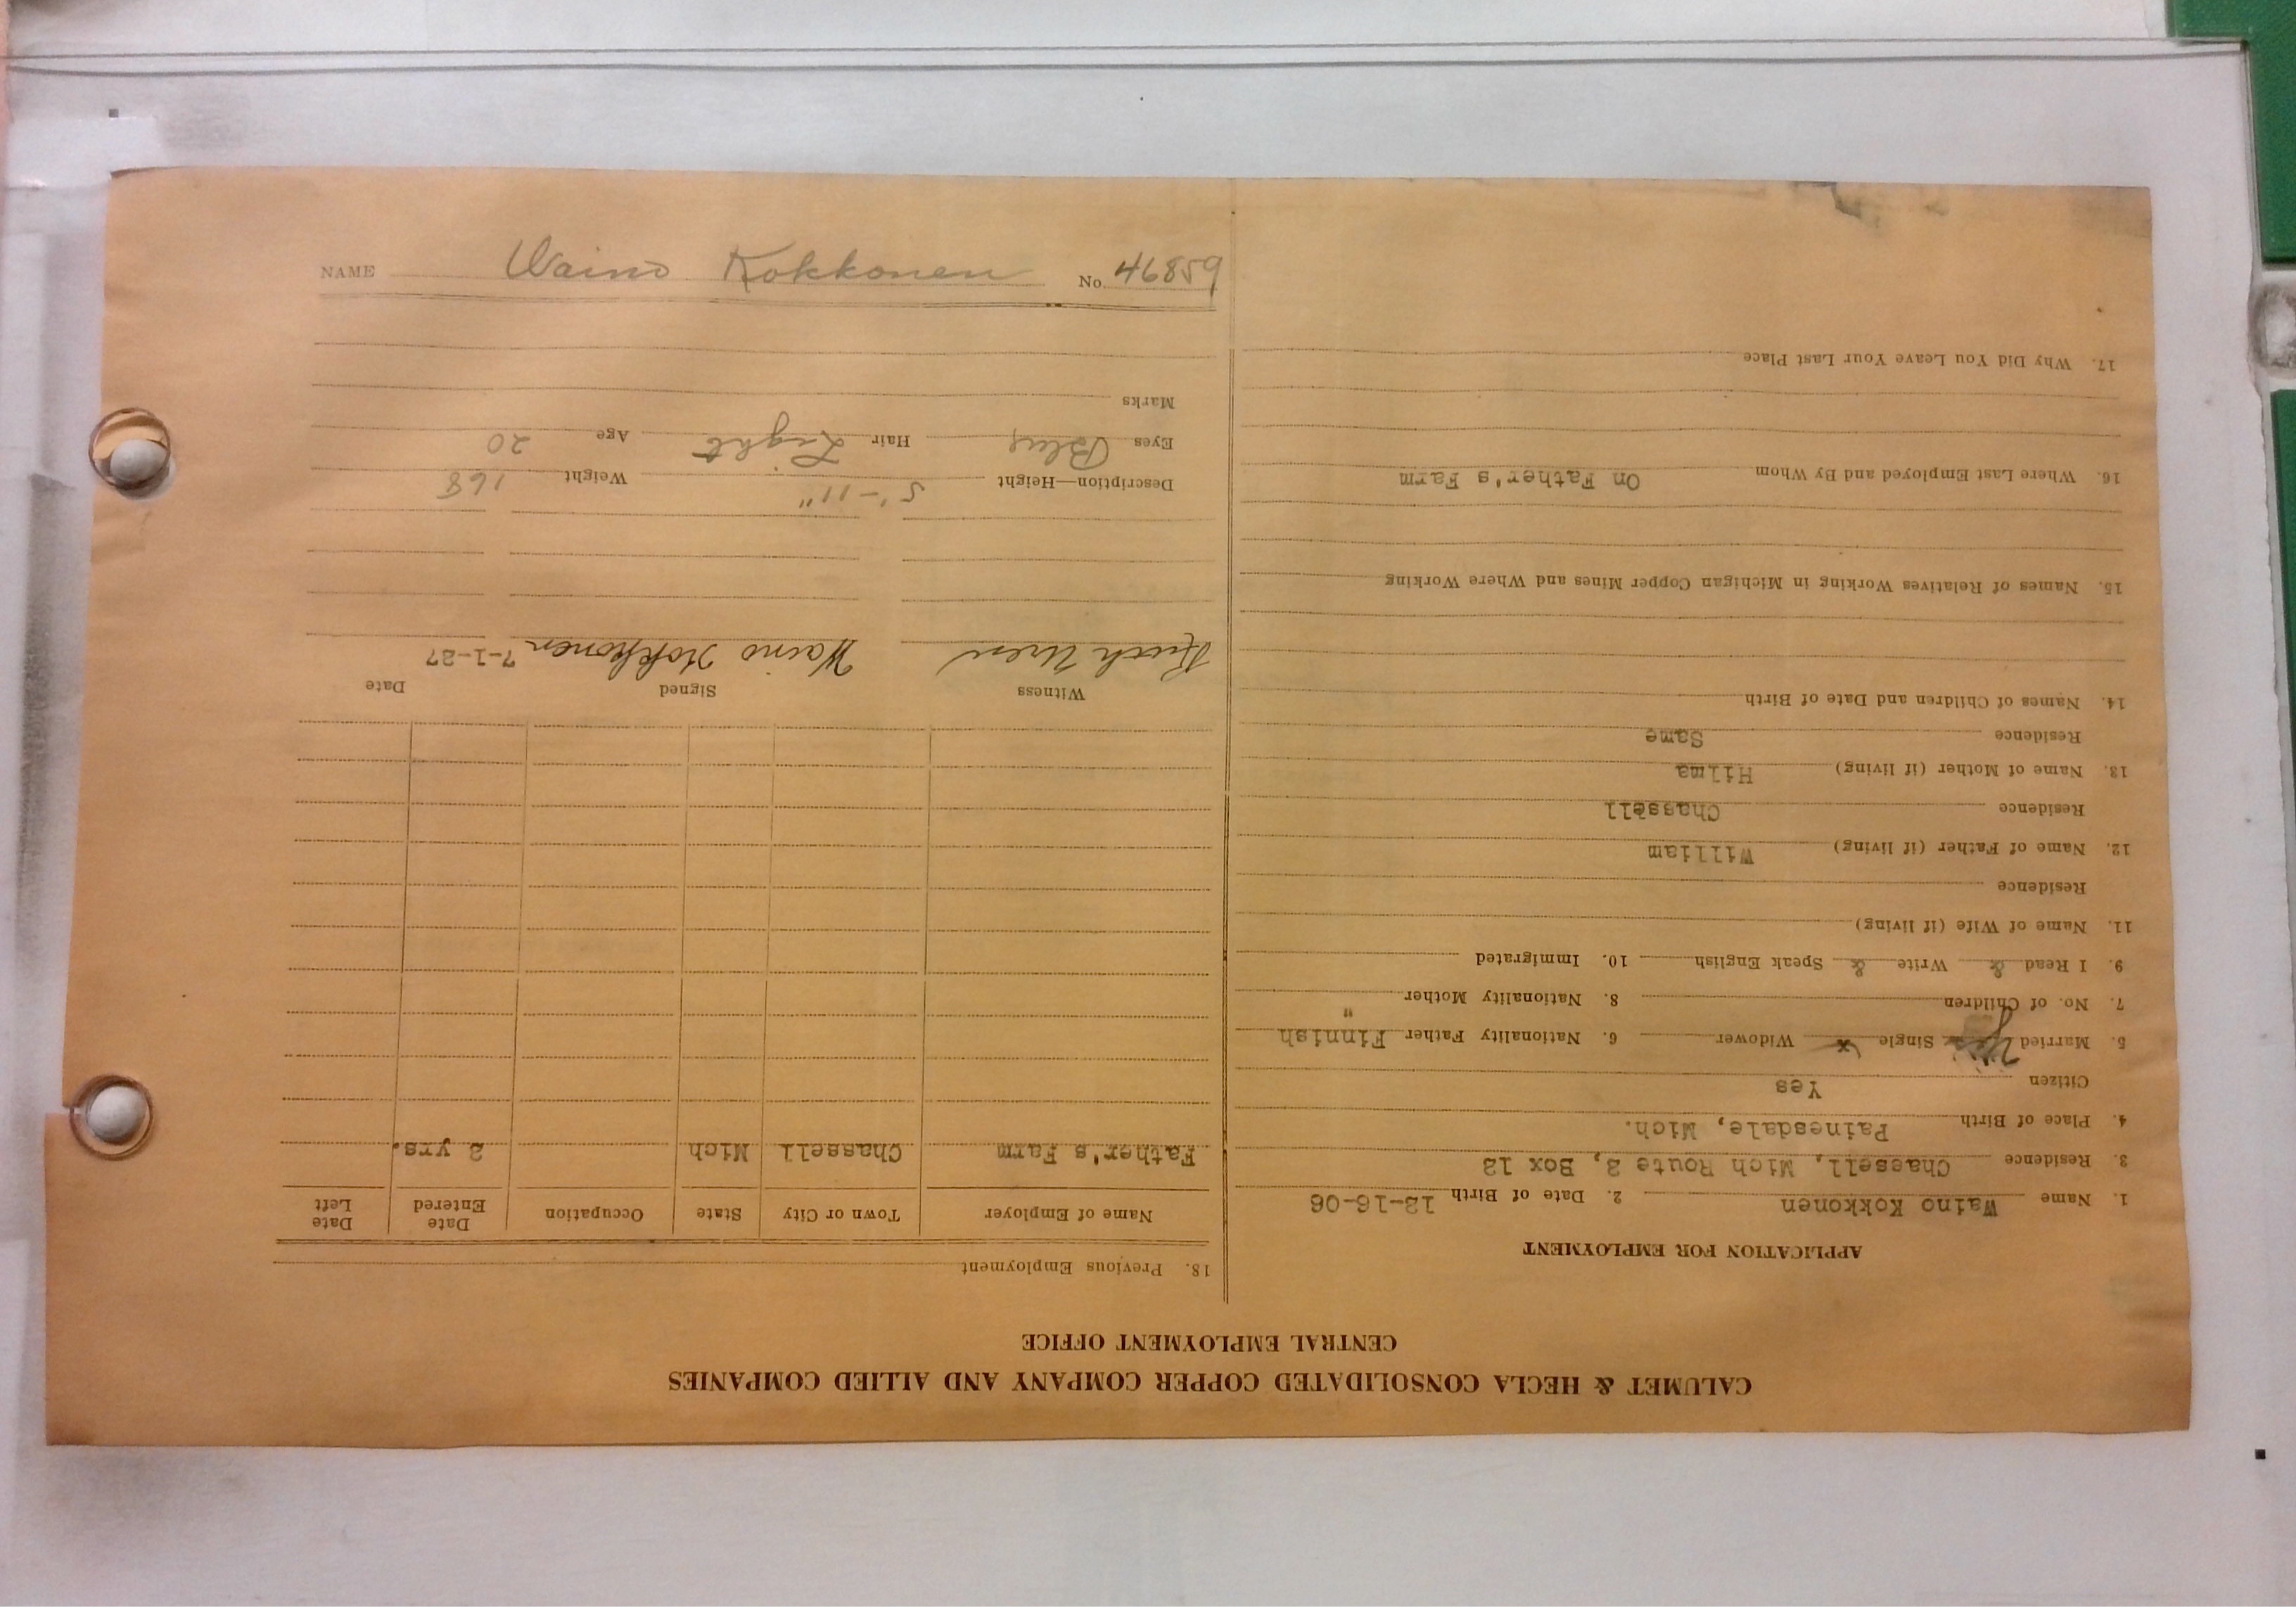 CALUMET & HECLA CONSOLIDATED COPPER COMPANY AND ALLIED COMPANIES
CENTRAL EMPLOYMENT OFFICE
APPLICATION FOR EMPLOYMENT
1. Name Waino Kokkonen 2. Date of Birth 12-16-06
3. Residence Chassell, Mich Route 2, Box 12
4. Place of Birth Painesdale, Mich.
Citizen Yes
5. Married Single x Widower 6. Nationality Father Finnish
7. No. of Children 8. Nationality Mother "
9. I Read & Write & Speak English 10. Immigrated
11. Name of Wife (if living)
Residence
12. Name of Father (if living) William
Residence Chassell
13. Name of Mother (if living) Hilma
Residence Same
14. Names of Children and Date of Birth
15. Names of Relatives Working in Michigan Copper Mines and Where Working
16. Where Last Employed and By Whom On Father's Farm
17. Why Did You Leave Your Last Place
18. Previous Employment
Name of Employer Town or City State Occupation Date Entered Date Left
Father's Farm Chassell Mich 2 yrs.
Witness Signed Date
Waino Kokkonen 7-1-27
Description—Height 5'-11" Weight 168
Eyes Blue Hair Light Age 20
Marks
NAME Waino Kokkonen No. 46859